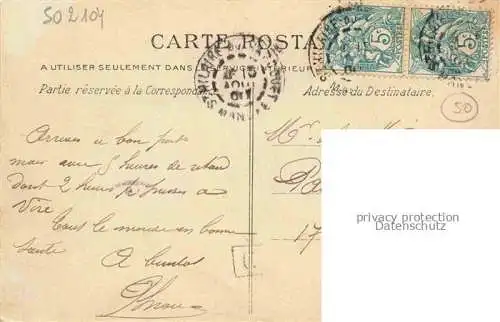 50 2104
CARTE POSTA
A UTILISER SEULEMENT DANS LE SERVICE INTÉRIEUR
Partie réservée à la Correspondance
Adresse du Destinataire.
5
5
50
Arrivés à bon port
mais avec 5 heures de retard
dont 2 heures passées à
Vire
Tous le monde en bonne
Santé
A bientôt
17
privacy protection
Datenschutz